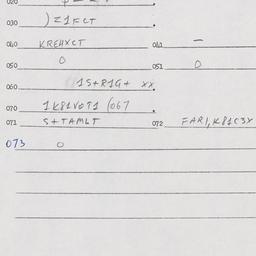 030 )=1FCT
040 KREHXCT 041 —
050 0 051 0
060 1S+R1G+ XX
070 1K81V0T1 (067
071 S+TAMLT 072 FAR1,K81C3X
073 0